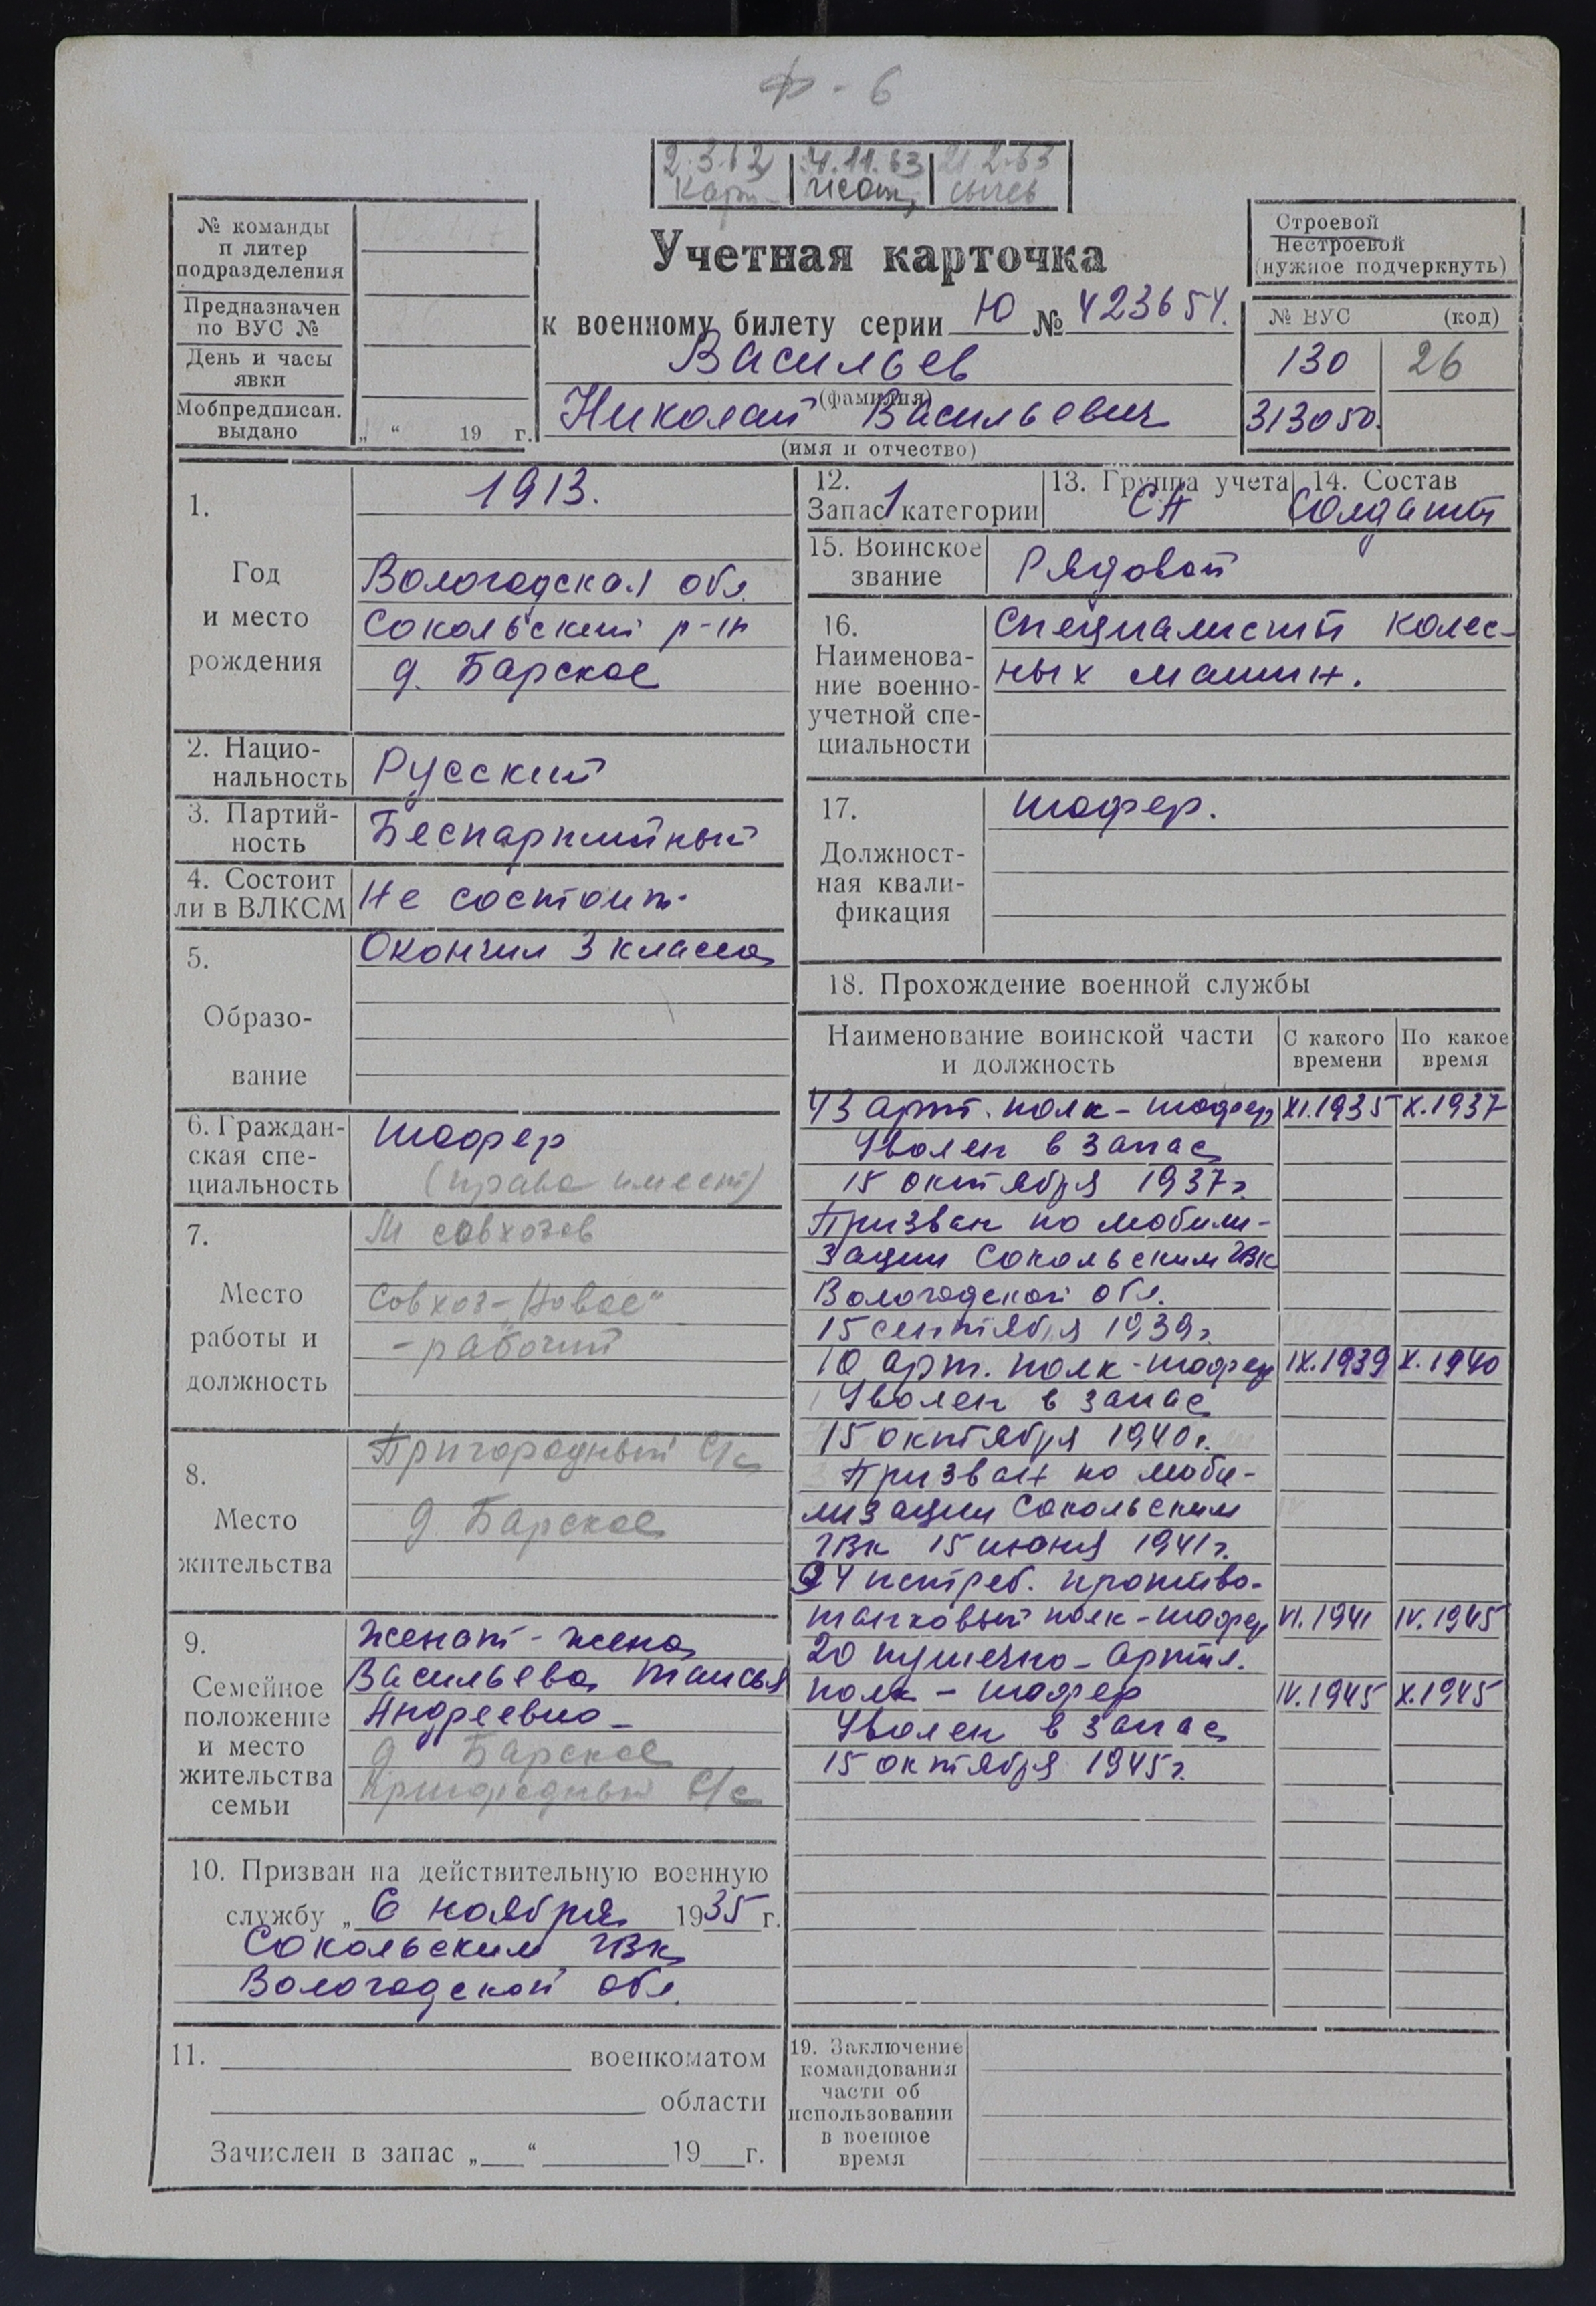 Ф - 6
2.3.62 4.11.63 21.2.63
Учетная карточка
к военному билету серии Ю № 423654.
Васильев
(фамилия)
Николай Васильевич
(имя и отчество)
№ команды
и литер
подразделения
Предназначен
по ВУС №
День и часы
явки
Мобпредписан.
выдано
„ “ 19 г.
Строевой
Нестроевой
(нужное подчеркнуть)
№ ВУС (код)
130 26
313050.
1.
Год
и место
рождения
1913.
Вологодская обл.
Сокольский р-н
д. Барское
2. Нацио-
нальность
Русский
3. Партий-
ность
Беспартийный
4. Состоит
ли в ВЛКСМ
Не состоит.
5.
Образо-
вание
Окончил 3 класса
6. Граждан-
ская спе-
циальность
Шофер
(права имеет)
7.
Место
работы и
должность
М совхозов
Совхоз-„Новое“
- рабочий
8.
Место
жительства
Пригородный с/с
д. Барское
9.
Семейное
положение
и место
жительства
семьи
Женат - жена
Васильева Таисья
Андреевна -
д Барское
Пригородный с/с
10. Призван на действительную военную
службу „ 6 ноября 1935 г.
Сокольским ГВК
Вологодской обл.
11. военкоматом
области
Зачислен в запас „ “ 19 г.
12.
Запас 1 категории
13. Группа учета
СА
14. Состав
Солдат
15. Воинское
звание
Рядовой
16.
Наименова-
ние военно-
учетной спе-
циальности
Специалист колес-
ных машин.
17.
Должност-
ная квали-
фикация
шофер.
18. Прохождение военной службы
Наименование воинской части
и должность
С какого
времени
По какое
время
43 арт. полк - шофер XI.1935 X.1937
Уволен в запас
15 октября 1937г.
Призван по мобили-
зации Сокольским ГВК
Вологодской обл.
15 сентября 1939г.
10 арт. полк - шофер IX.1939 X.1940
Уволен в запас
15 октября 1940г.
Призван по моби-
лизации Сокольским
ГВК 15 июня 1941г.
24 истреб. противо-
танковый полк - шофер VI.1941 IV.1945
20 пушечно - артил.
полк - шофер IV.1945 X.1945
Уволен в запас
15 октября 1945г.
19. Заключение
командования
части об
использовании
в военное
время